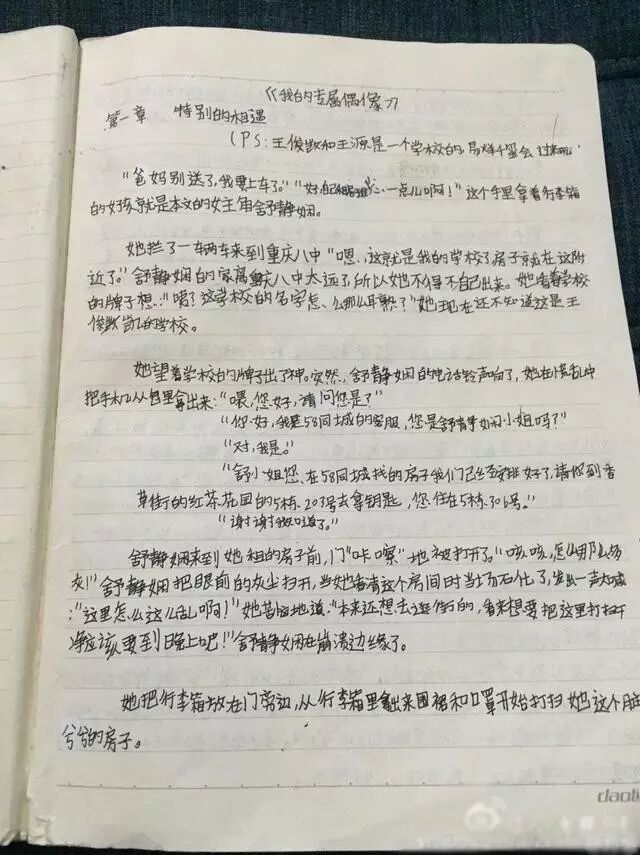 《我的专属偶像》
第一章 特别的相遇
(PS:王俊凯和王源是一个学校的,易烊千玺会过来玩
“爸妈别送了,我要上车了。”“好,自己 心一点儿啊!”这个手里拿着行李箱
的好孩 就是本文的女主角舒静娴。
她拦了一辆车来到重庆八中“嗯,这就是我的学校了房子就在这附
近了。”舒静娴的家离重庆八中太远了所以她不得不自己出来。她看着学校
的牌子想:“嗯?这学校的名字怎么那么耳熟?”她现在还不知道这是王
俊凯的学校。
她望着学校的牌子出了神。突然,舒静娴的电话铃声响了,她在慌乱中
把手机从包里拿出来:“喂,您好,请问您是?”
“你好,我是58同城的客服,您是舒静娴小姐吗?”
“对,我是。”
“舒小姐您在58同城找的房子我们已经安排好了,请您到香
草街的红茶花园的5栋.203号去拿钥匙,您住在5栋.304号。”
“谢谢我知道了。”
舒静娴来到她租的房子前,门“咔嚓”地被打开了。“咳咳,怎么那么多
灰!”舒静娴把眼前的灰尘扫开,当她看清这个房间时当场石化了,发出一声大喊
:“这里怎么这么乱啊!”她苦恼地道:“本来还想去逛街的,看来想要把这里打扫干
净应该要到晚上吧!”舒静娴在崩溃边缘了。
她把行李箱放在门旁边,从行李箱里拿出来围裙和口罩开始打扫她这个脏
兮兮的房子。